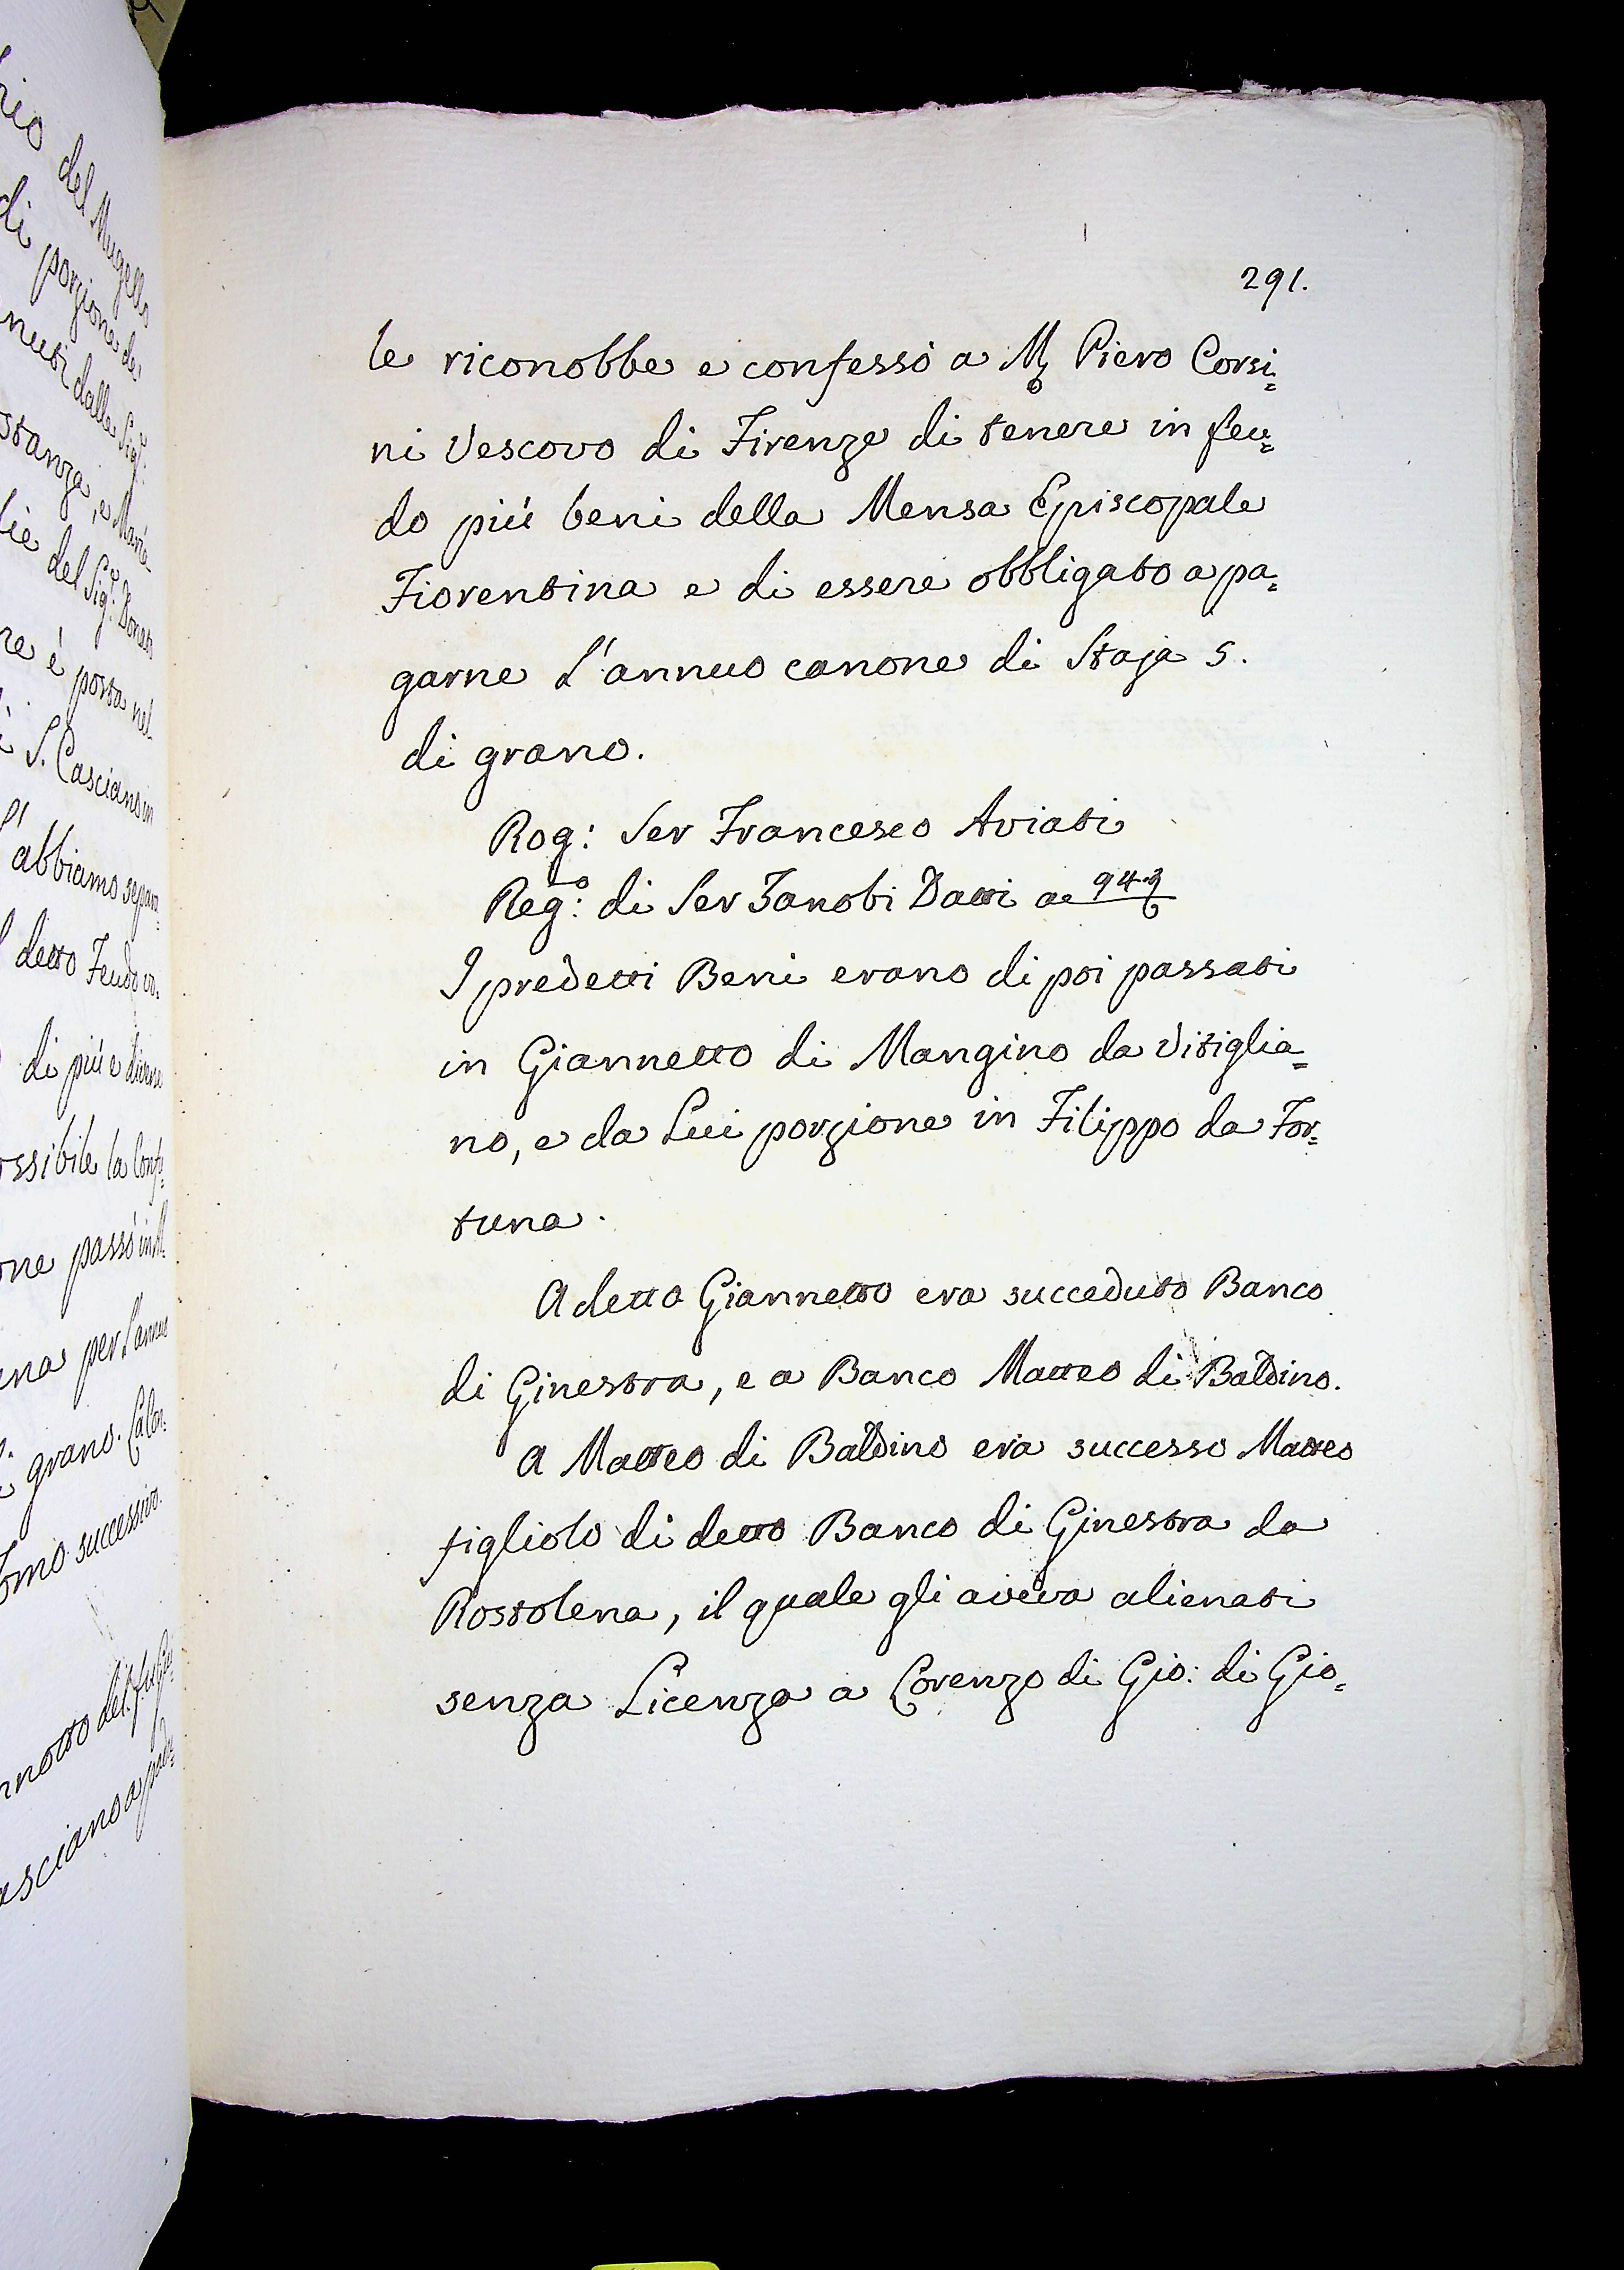 291.
le riconobbe e confessò a M Piero Corsi=
ni Vescovo di Firenze di tenere in feu=
do più beni della Mensa Episcopale
Fiorentina e di essere obbligato a pa=
garne l'annuo canone di Staja 5.
di grano.
Rog: Ser Francesco Aviati
Reg:º di Ser Zanobi Datti a 94
I predetti Beni erano di poi passati
in Giannetto di Mangino da Vitiglia=
no, e da Lui porzione in Filippo da For=
tuna.
A detto Giannetto era succeduto Banco
di Ginestra, e a Banco Matteo di Baldino.
A Matteo di Baldino era successo Matteo
figliolo di detto Banco di Ginestra da
Rostolena, il quale gli aveva alienati
senza Licenza a Lorenzo di Gio: di Gio=
del Mugello
di porzione de
nuti dalle Sig
stanza, e Marie
del Sig.r Donato
re è posta nel
S. Casciano in
abbiamo separa=
detto Feudo
di più e diverse
ssibile la Conf=
one passò in
na per l'annuo
grano.
omo successivo.
asciano a